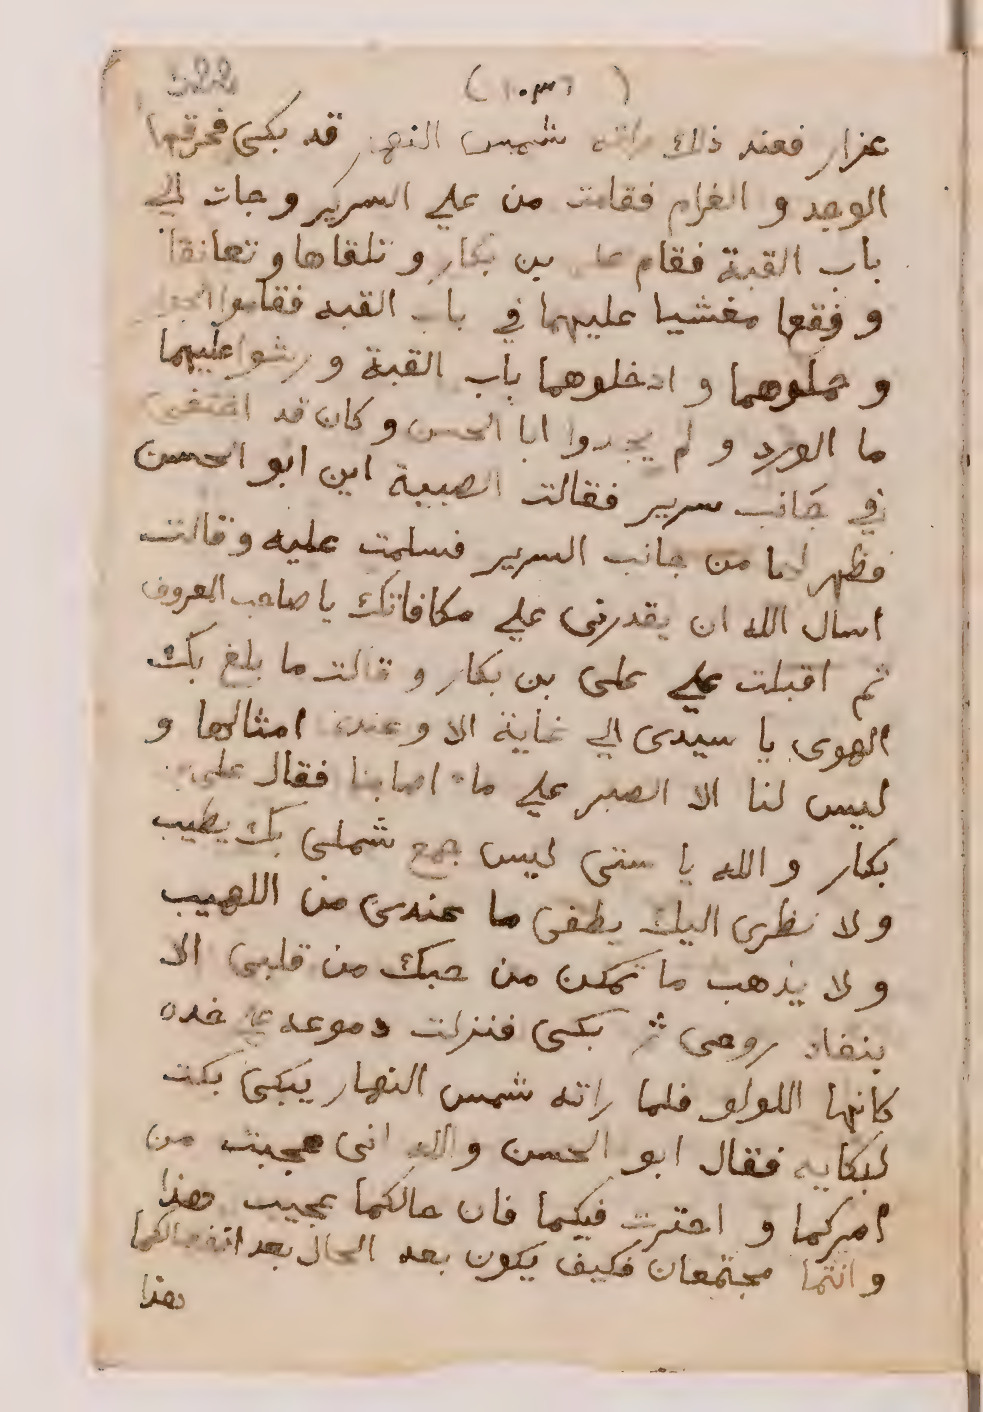 (١٠٣٦)
عزار فعند ذلك راته شمس النهار قد بكى فحرقها
الوجد و الغرام فقامت من علي السرير و جات الي
باب القبة فقام علي بن بكار و تلقاها و تعانقا
و وقعا مغشيا عليهما في باب القبه فقاموا الجوار
و حملوهما و ادخلوهما باب القبة و رشوا عليهما
ما الورد و لم يجدوا ابا الحسن و كان قد اختفى
في جانب سرير فقالت الصبية اين ابو الحسن
فظهر لها من جانب السرير فسلمت عليه و قالت
اسال الله ان يقدرنى علي مكافاتك يا صاحب المعروف
ثم اقبلت علي على بن بكار و قالت ما بلغ بك
الهوى يا سيدى الي غاية الا و عندى امثالها و
ليس لنا الا الصبر علي ما اصابنا فقال على بن
بكار و الله يا ستى ليس جمع شملى بك يطيب
و لا نظرى اليك يطفى ما عندى من اللهيب
و لا يذهب ما تمكن من حبك من قلبى الا
بنفاد روحى ثم بكى فنزلت دموعه علي خده
كانها اللولو فلما راته شمس النهار يبكى بكت
لبكايه فقال ابو الحسن و الله انى عجبت من
امركما و احترت فيكما فان حالكما عجيب هذا
و انتما مجتمعان فكيف يكون بعد الحال بعد انفصالكما
هذا